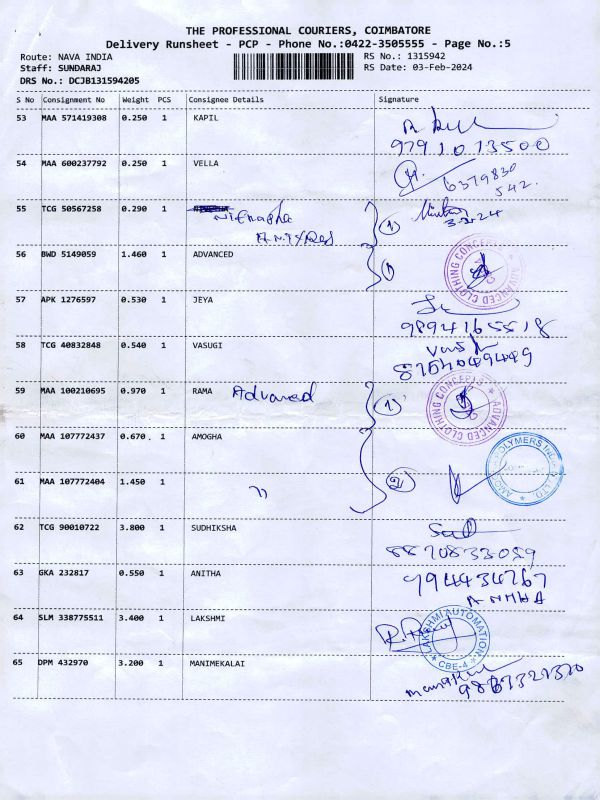 THE PROFESSIONAL COURIERS, COIMBATORE
Delivery Runsheet - PCP - Phone No.:0422-3505555 - Page No.:5
Route: NAVA INDIA
Staff: SUNDARAJ
DRS No.: DCJB131594205
RS No.: 1315942
RS Date: 03-Feb-2024
S No Consignment No Weight PCS Consignee Details Signature
53 MAA 571419308 0.250 1 KAPIL
9791073500
54 MAA 600237792 0.250 1 VELLA
6379830
542.
55 TCG 50567258 0.290 1
(1)
56 BWD 5149059 1.460 1 ADVANCED
(1)
ADVANCED CLOTHING CONCEPTS
57 APK 1276597 0.530 1 JEYA
9894165518
58 TCG 40832848 0.540 1 VASUGI
59 MAA 100210695 0.970 1 RAMA Advanced
(1)
ADVANCED CLOTHING CONCEPTS
60 MAA 107772437 0.670 1 AMOGHA
(2)
61 MAA 107772404 1.450 1 "
62 TCG 90010722 3.800 1 SUDHIKSHA
8870833059
63 GKA 232817 0.550 1 ANITHA
64 SLM 338775511 3.400 1 LAKSHMI
LAKSHMI AUTOMATION
CBE-4
65 DPM 432970 3.200 1 MANIMEKALAI